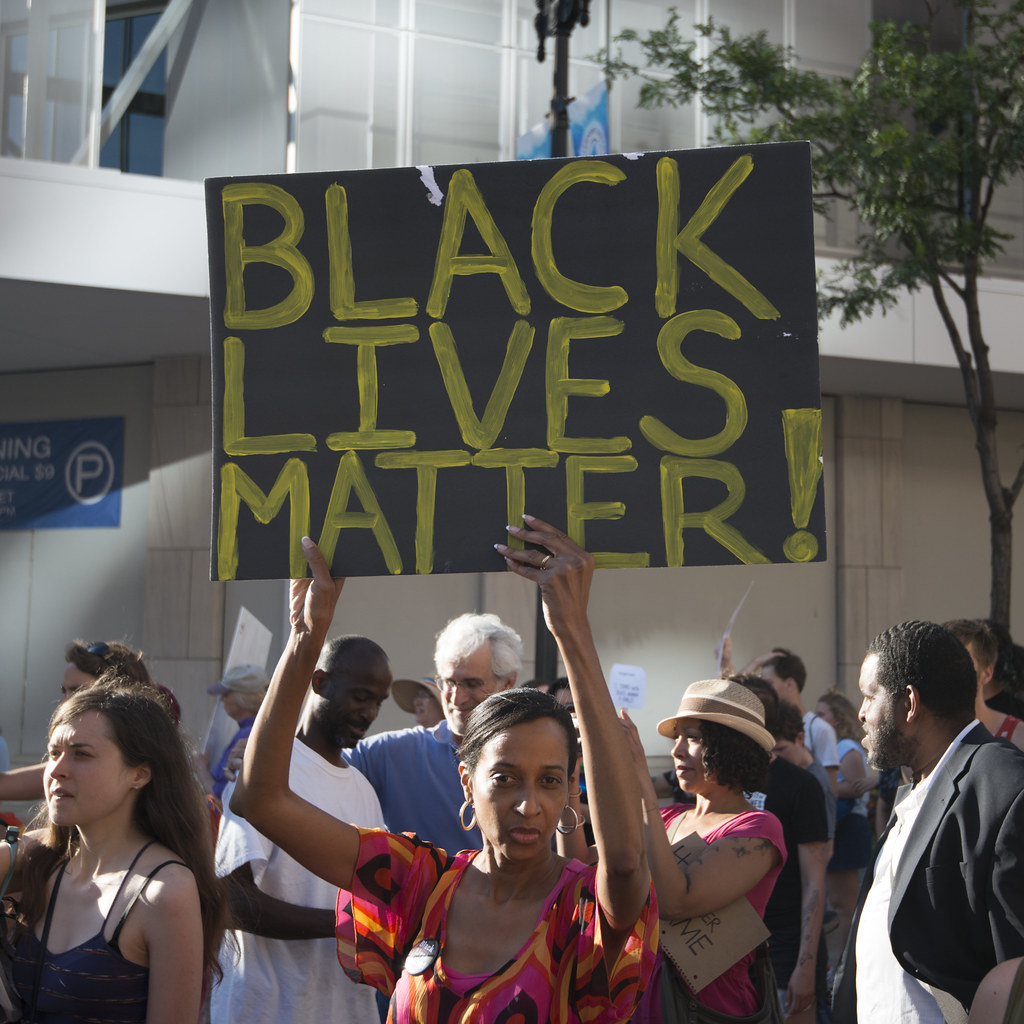 BLACK
LIVES
MATTER!
NING
CIAL $9
P
PM
ME